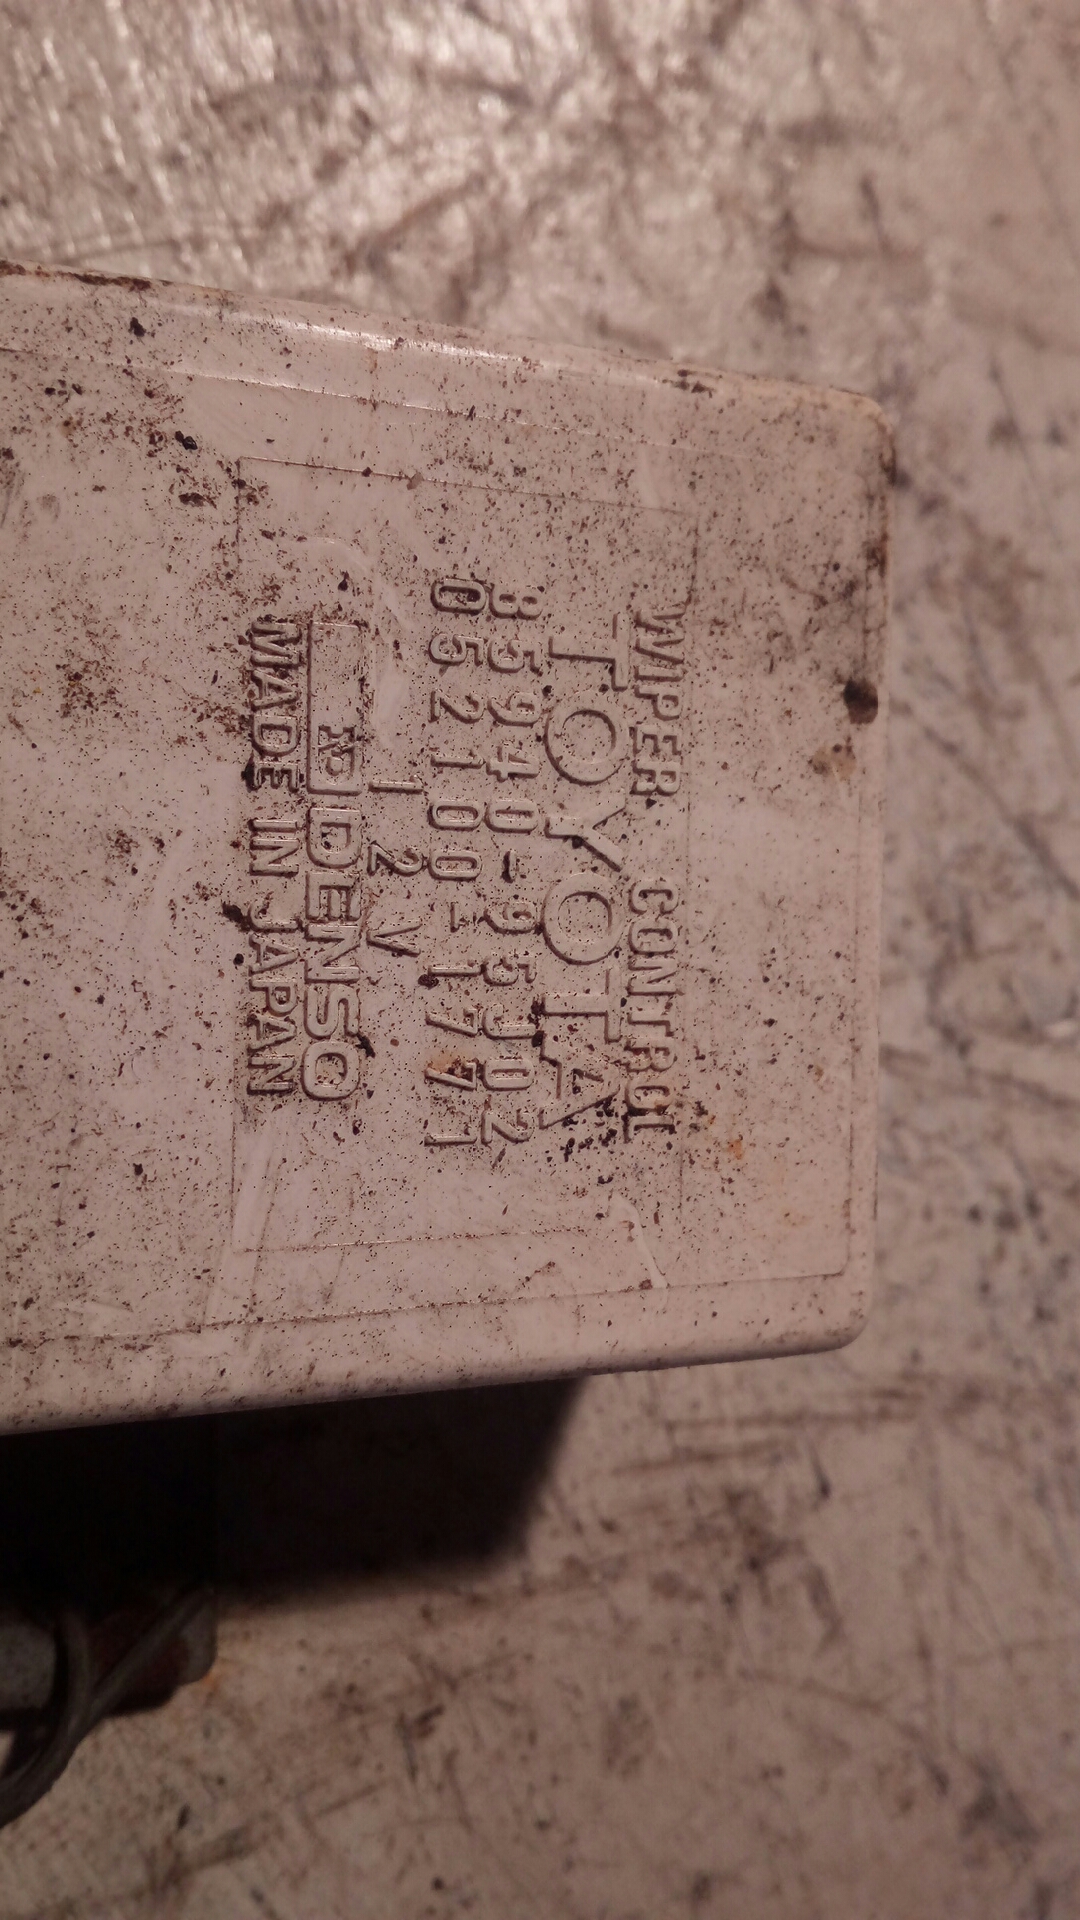 WIPER CONTROL
TOYOTA
85940-95J02
052100-1771
12V
DENSO
MADE IN JAPAN